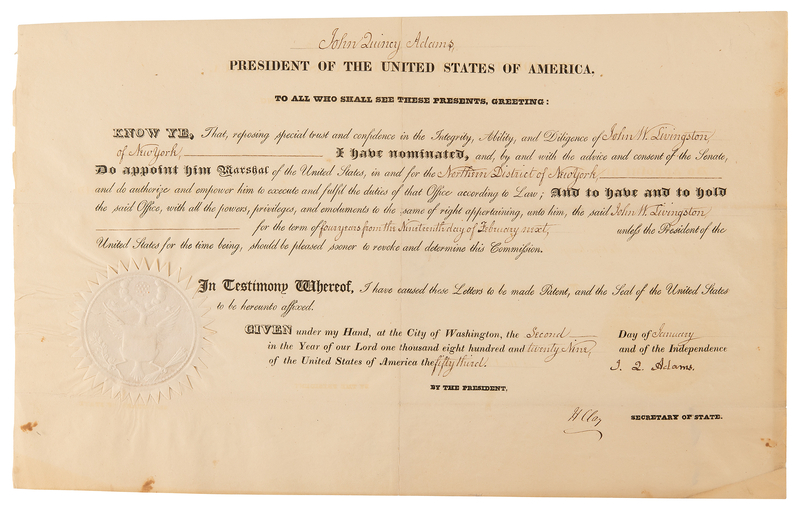 John Quincy Adams,
PRESIDENT OF THE UNITED STATES OF AMERICA.
TO ALL WHO SHALL SEE THESE PRESENTS, GREETING:
KNOW YE, That, reposing special trust and confidence in the Integrity, Ability, and Diligence of John W. Livingston
of New York, I have nominated, and, by and with the advice and consent of the Senate,
Do appoint him Marshal of the United States, in and for the Northern District of New York,
and do authorize and empower him to execute and fulfil the duties of that Office according to Law; And to have and to hold
the said Office, with all the powers, privileges, and emoluments to the same of right appertaining, unto him, the said John W. Livingston
for the term of four years from the Nineteenth day of February next, unless the President of the
United States for the time being, should be pleased sooner to revoke and determine this Commission.
In Testimony Whereof, I have caused these Letters to be made Patent, and the Seal of the United States
to be hereunto affixed.
GIVEN under my Hand, at the City of Washington, the Second Day of January
in the Year of our Lord one thousand eight hundred and twenty Nine, and of the Independence
of the United States of America the fifty third. J. Q. Adams.
BY THE PRESIDENT.
H Clay SECRETARY OF STATE.